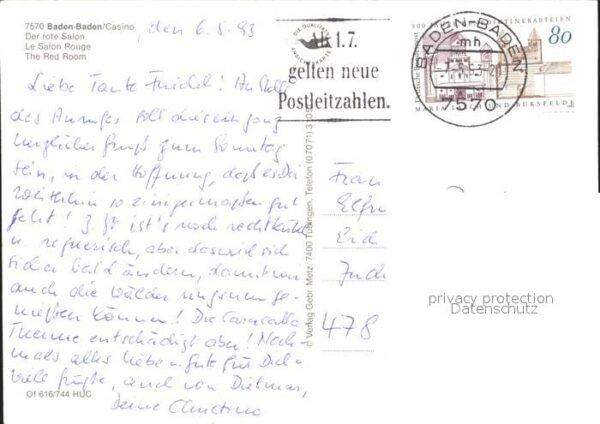 7570 Baden-Baden/Casino
Der rote Salon
Le Salon Rouge
The Red Room
, den 6.5.93
Liebe Tante Friedel! Anstelle
des Anrufes soll dies ein ganz
herzlicher Gruß zum Sonntag
sein, in der Hoffnung, daß es Dir
weiterhin so einigermaßen gut
geht! Z. Zt ist's noch recht kühl
u. regnerisch, aber das wird sich
sicher bald ändern, damit wir
auch die Wälder ringsum ge-
nießen können! Die Caracalla
Therme entschädigt aber! Noch-
mals alles Liebe u. Gute für Dich u.
viele Grüße, auch von Dietmar,
Deine Christina
Of 616/744 HUC
© Verlag Gebr. Metz, 7400 Tübingen, Telefon (07071)
DIE QUALITÄTS
ANSICHTSKARTE
Ab 1.7.
gelten neue
Postleitzahlen.
BADEN-BADEN
mh
7570
Deutsche Bundespost
900 JAHRE BENEDIKTINERABTEIEN
80
MARIA LAACH UND BURSFELDE
Frau
478
privacy protection
Datenschutz